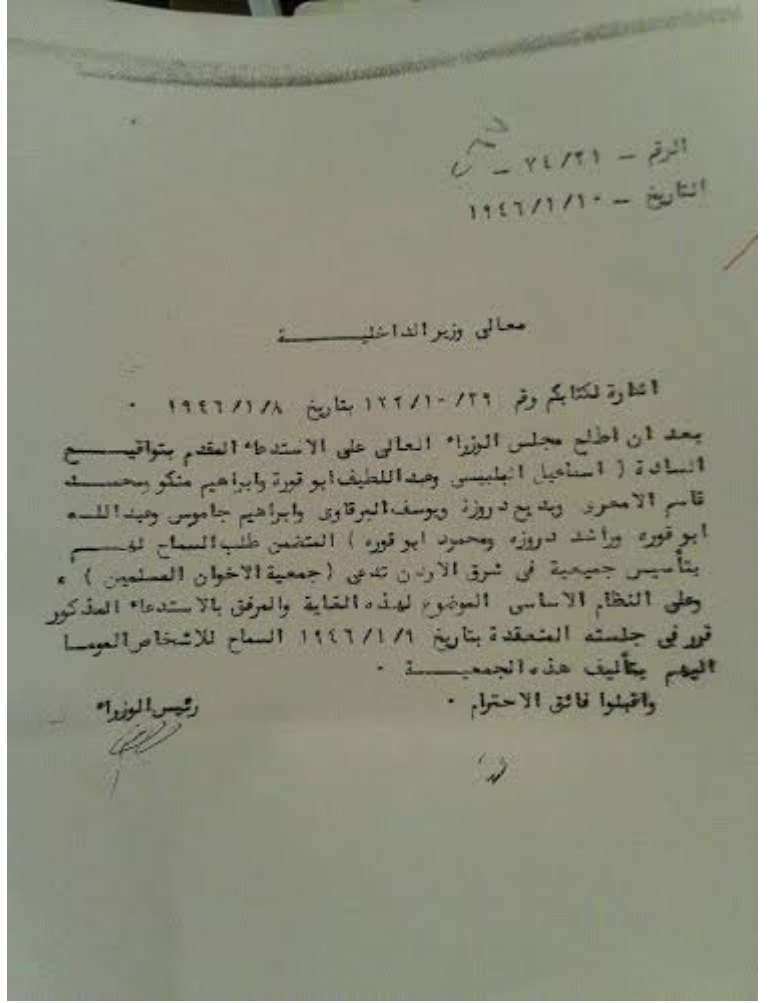 الرقم ــ ٧٤/٢١ ــ
التاريخ ــ ١٩٤٦/١/١٠
معالى وزير الداخليـــــــــة
اشارة لكتابكم رقم ١٢٢/١٠/٢٩ بتاريخ ١٩٤٦/١/٨ ٠
بعد ان اطلع مجلس الوزراء العالى على الاستدعاء المقدم بتواقيـــع
السادة ( اسماعيل البلبيسى وعبد اللطيف ابو قورة وابراهيم منكو ومحمـــد
قاسم الامعرى وبديع دروزة ويوسف البرقاوى وابراهيم جاموس وعبد اللـــه
ابو قوره وراشد دروزه ومحمود ابو قوره ) المتضمن طلب السماح لهـــم
بتأسيس جميعية فى شرق الاردن تدعى ( جمعية الاخوان المسلمين ) ،
وعلى النظام الاساسى الموضوع لهذه الغاية والمرفق بالاستدعاء المذكور
قرر فى جلسته المنعقدة بتاريخ ١٩٤٦/١/٩ السماح للاشخاص الموما
اليهم بتأليف هذه الجمعيــــــة ٠
واقبلوا فائق الاحترام ٠
رئيس الوزراء